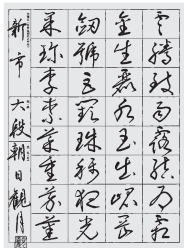 雲騰致雨露結為霜
金生麗水玉出崑岡
劍號巨闕珠稱夜光
菓珍李柰菜重芥薑
新市 六段 朝日観月